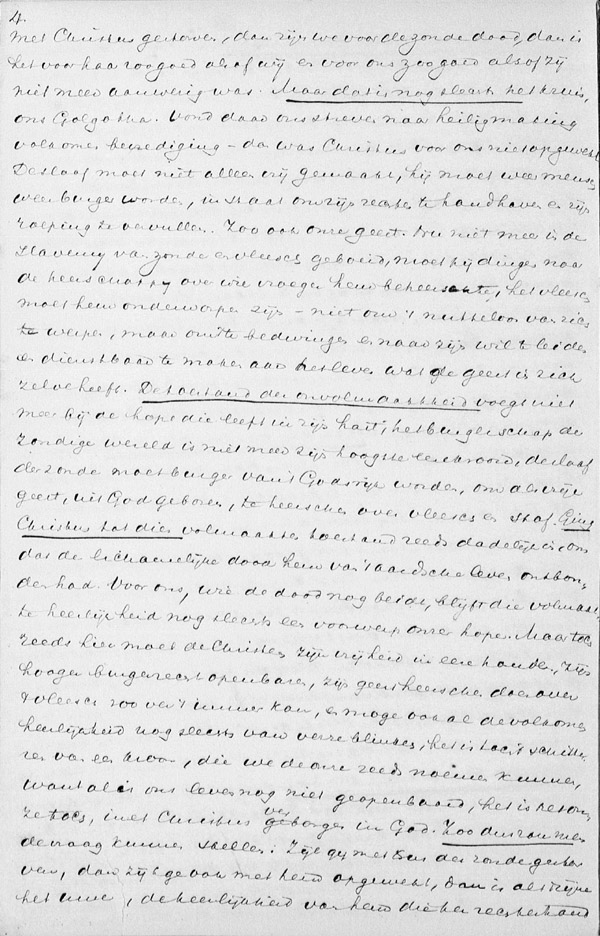 4.
met Christus gestorven, dan zijn we voor de zonde dood, dan is
het voor haar zoo goed alsof wij er voor ons zoo goed alsof zij
niet meer aanwezig was. Maar dat is nog slechts het kruis,
ons Golgotha. Vond daar ons streven naar heiligmaking
volkomen bevrediging – dan was Christus voor ons niet opgewekt
De slaaf moet niet alleen vrij gemaakt, hij moet weer mensch
weer burger worden, in staat om zijn rechten te handhaven en zijn
roeping te vervullen. Zoo ook onze geest. Nu niet meer in de
slavernij van zonde en vleesch geboeid, moet hij dingen naar
de heerschappij over wie vroeger hem beheerschte, het vleesch
moet hem onderworpen zijn – niet om 't nutteloos van zich
te werpen, maar om te bedwingen en naar zijn wil te leiden
en dienstbaar te maken aan het leven wat de geest in zich
zelve heeft. De toestand der onvolmaaktheid voegt niet
meer bij de hope die leeft in zijn hart, het burgerschap der
zondige wereld is niet meer zijn hoogste eerekroon, de slaaf
der zonde moet burger van 't Godsrijk worden, om als vrije
geest, uit God geboren, te heerschen over vleesch en stof. Ging
Christus tot dien volmaakten toestand reeds dadelijk in om
dat de lichamelijke dood hem van 't aardsche leven ontbon-
den had. Voor ons, wie de dood nog beidt, blijft die volmaak-
te heerlijkheid nog slechts een voorwerp onzer hope. Maar toch
reeds hier moet de Christen zijn vrijheid in eere houden, zijn
hooger burgerrecht openbaren, zijn geest heerschen doen over
't vleesch zoo ver 't immer kan, en moge ook al de volkomen
heerlijkheid nog slechts van verre blinken, het is toch 't schitte-
ren van een kroon, die we de onze reeds noemen kunnen,
want al is ons leven nog niet geopenbaard, het is het on-
ze toch, met Christus verborgen in God. Zoo dus zou men
de vraag kunnen stellen: Zijt gij met Hem der zonde gestor
ven, dan zijt ge ook met hem opgewekt, dan is al 't zijne
het uwe, de heerlijkheid van hem die ter rechterhand